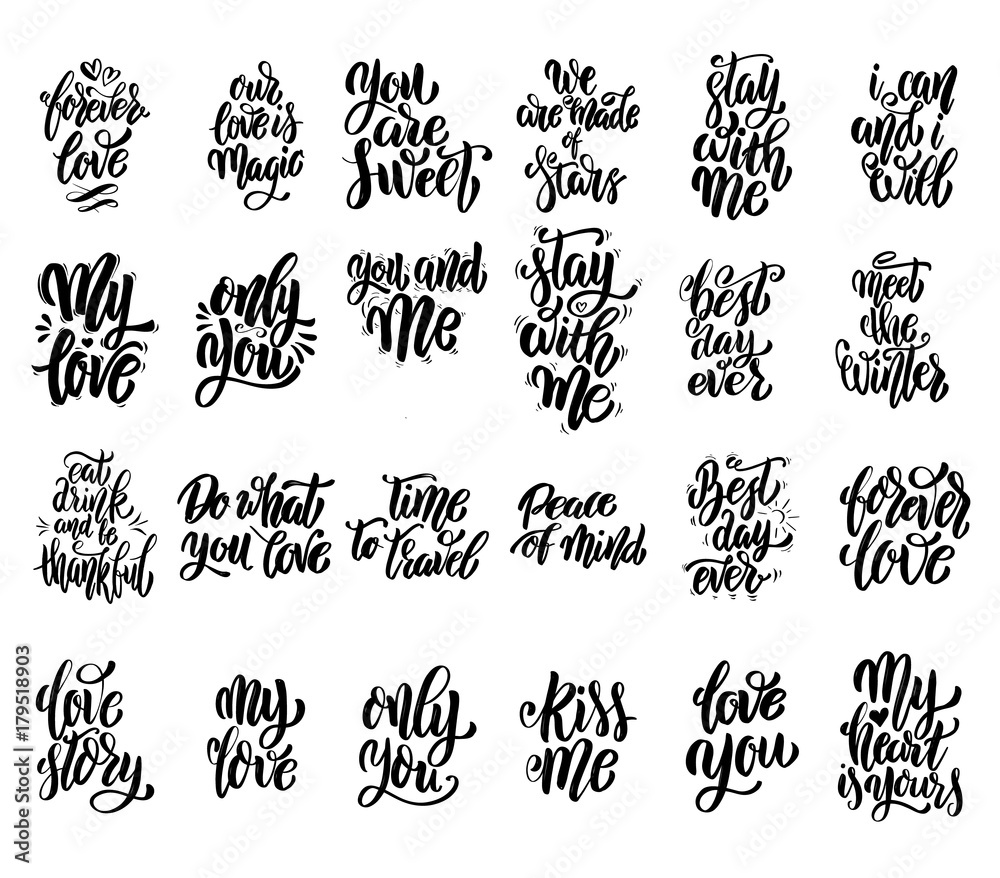 forever
love
our
love is
Magic
you
are
Sweet
we
are made
of
stars
stay
with
me
i can
and i
will
My
love
only
you
you and
Me
stay
with
me
best
day
ever
meet
the
winter
eat
drink
and be
thankful
Do what
you love
time
to travel
Peace
of mind
Best
day
ever
forever
love
love
story
my
love
only
you
kiss
me
love
you
My
heart
is yours
Adobe Stock | #179518903
Adobe Stock